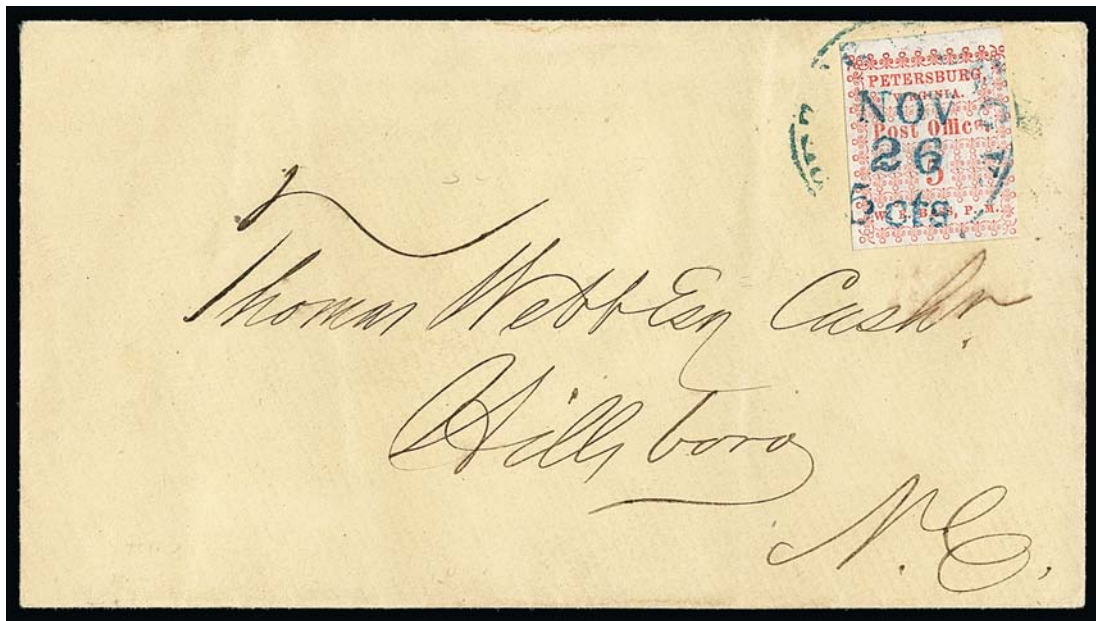 PETERSBURG,
VIRGINIA.
Post Office
5
W. E. BASS, P. M.
NOV
26
5 cts
Thomas Webb Esq Cashr.
Hillsboro
N. C.